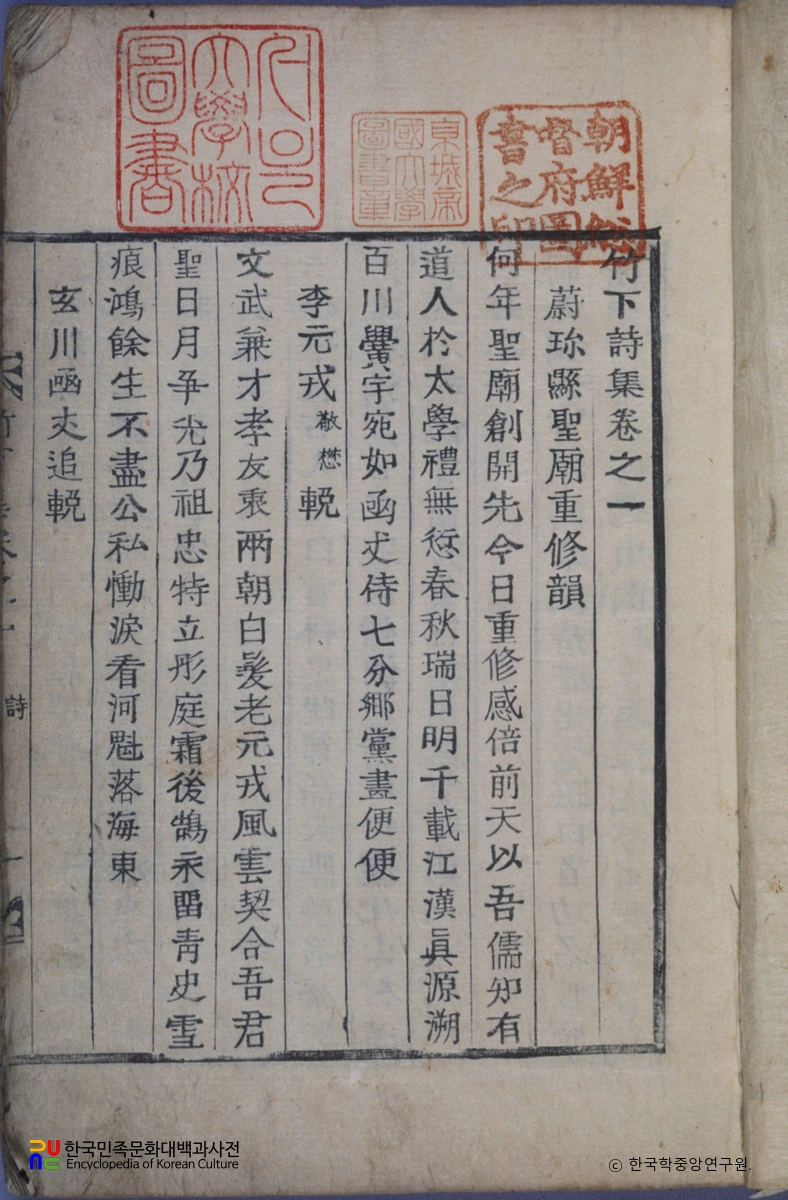 서울大學校圖書
京城帝國大學圖書章
朝鮮總督府圖書之印
竹下詩集卷之一
蔚珍縣聖廟重修韻
何年聖廟創開先今日重修感倍前天以吾儒知有
道人於太學禮無愆春秋瑞日明千載江漢眞源溯
百川黌宇宛如函丈侍七分鄕黨畫便便
李元戎敬懋輓
文武兼才孝友衷兩朝白髮老元戎風雲契合吾君
聖日月爭光乃祖忠特立彤庭霜後鵠永留靑史雪
痕鴻餘生不盡公私慟淚看河魁落海東
玄川函丈追輓
詩
一
한국민족문화대백과사전
Encyclopedia of Korean Culture
© 한국학중앙연구원.